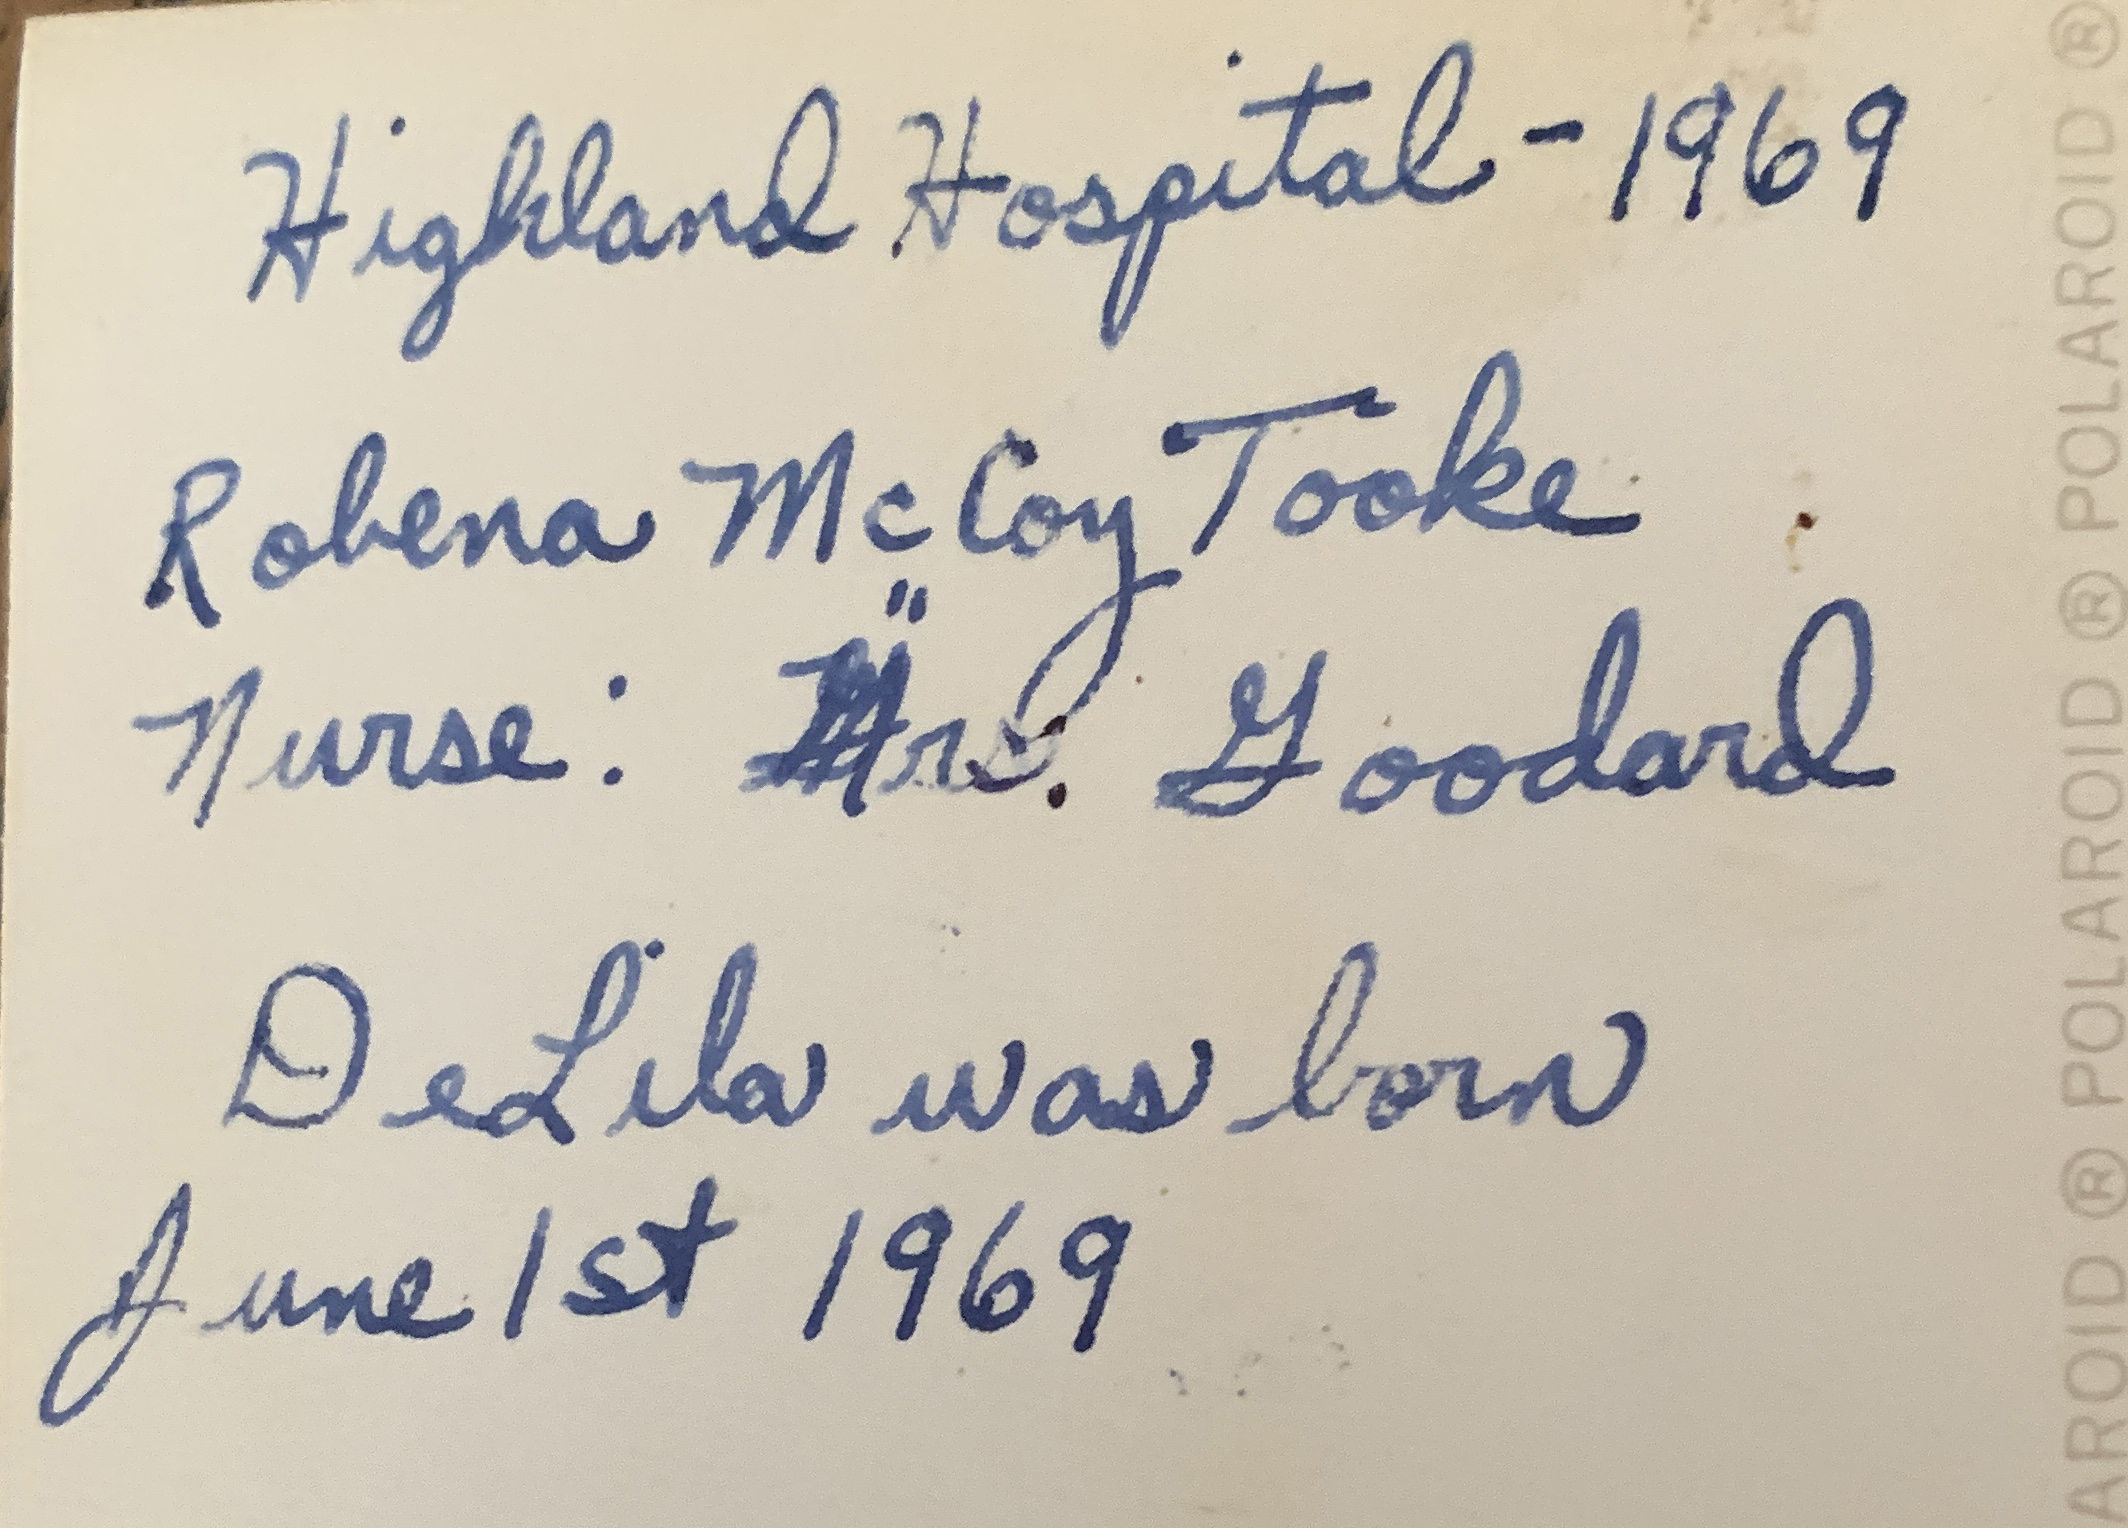 Highland Hospital - 1969
Robena McCoy Tooke
Nurse: Mrs. Goodard
DeLila was born
June 1st 1969
AROID ® POLAROID ® POLAROID ®